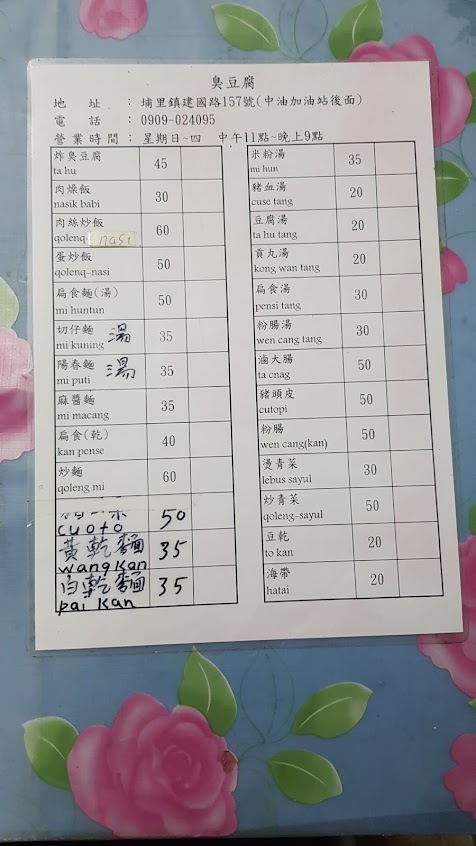 臭豆腐
地 址 ：埔里鎮建國路157號(中油加油站後面)
電 話 ：0909-024095
營業時間：星期日~四 中午11點~晚上9點
炸臭豆腐 45
ta hu
肉燥飯 30
nasik babi
肉絲炒飯 60
qolenq nasi
蛋炒飯 50
qolenq-nasi
扁食麵(湯) 50
mi huntun
切仔麵 湯 35
mi kuning
陽春麵 湯 35
mi puti
麻醬麵 35
mi macang
扁食(乾) 40
kan pense
炒麵 60
qoleng mi
50
cuoto
黃乾麵 35
wangkan
白乾麵 35
pai kan
米粉湯 35
mi hun
豬血湯 20
cuse tang
豆腐湯 20
ta hu tang
貢丸湯 20
kong wan tang
扁食湯 30
pensi tang
粉腸湯 30
wen cang tang
滷大腸 50
ta cnag
豬頭皮 50
cutopi
粉腸 50
wen cang(kan)
燙青菜 30
lebus sayul
炒青菜 50
qoleng-sayul
豆乾 20
to kan
海帶 20
hatai